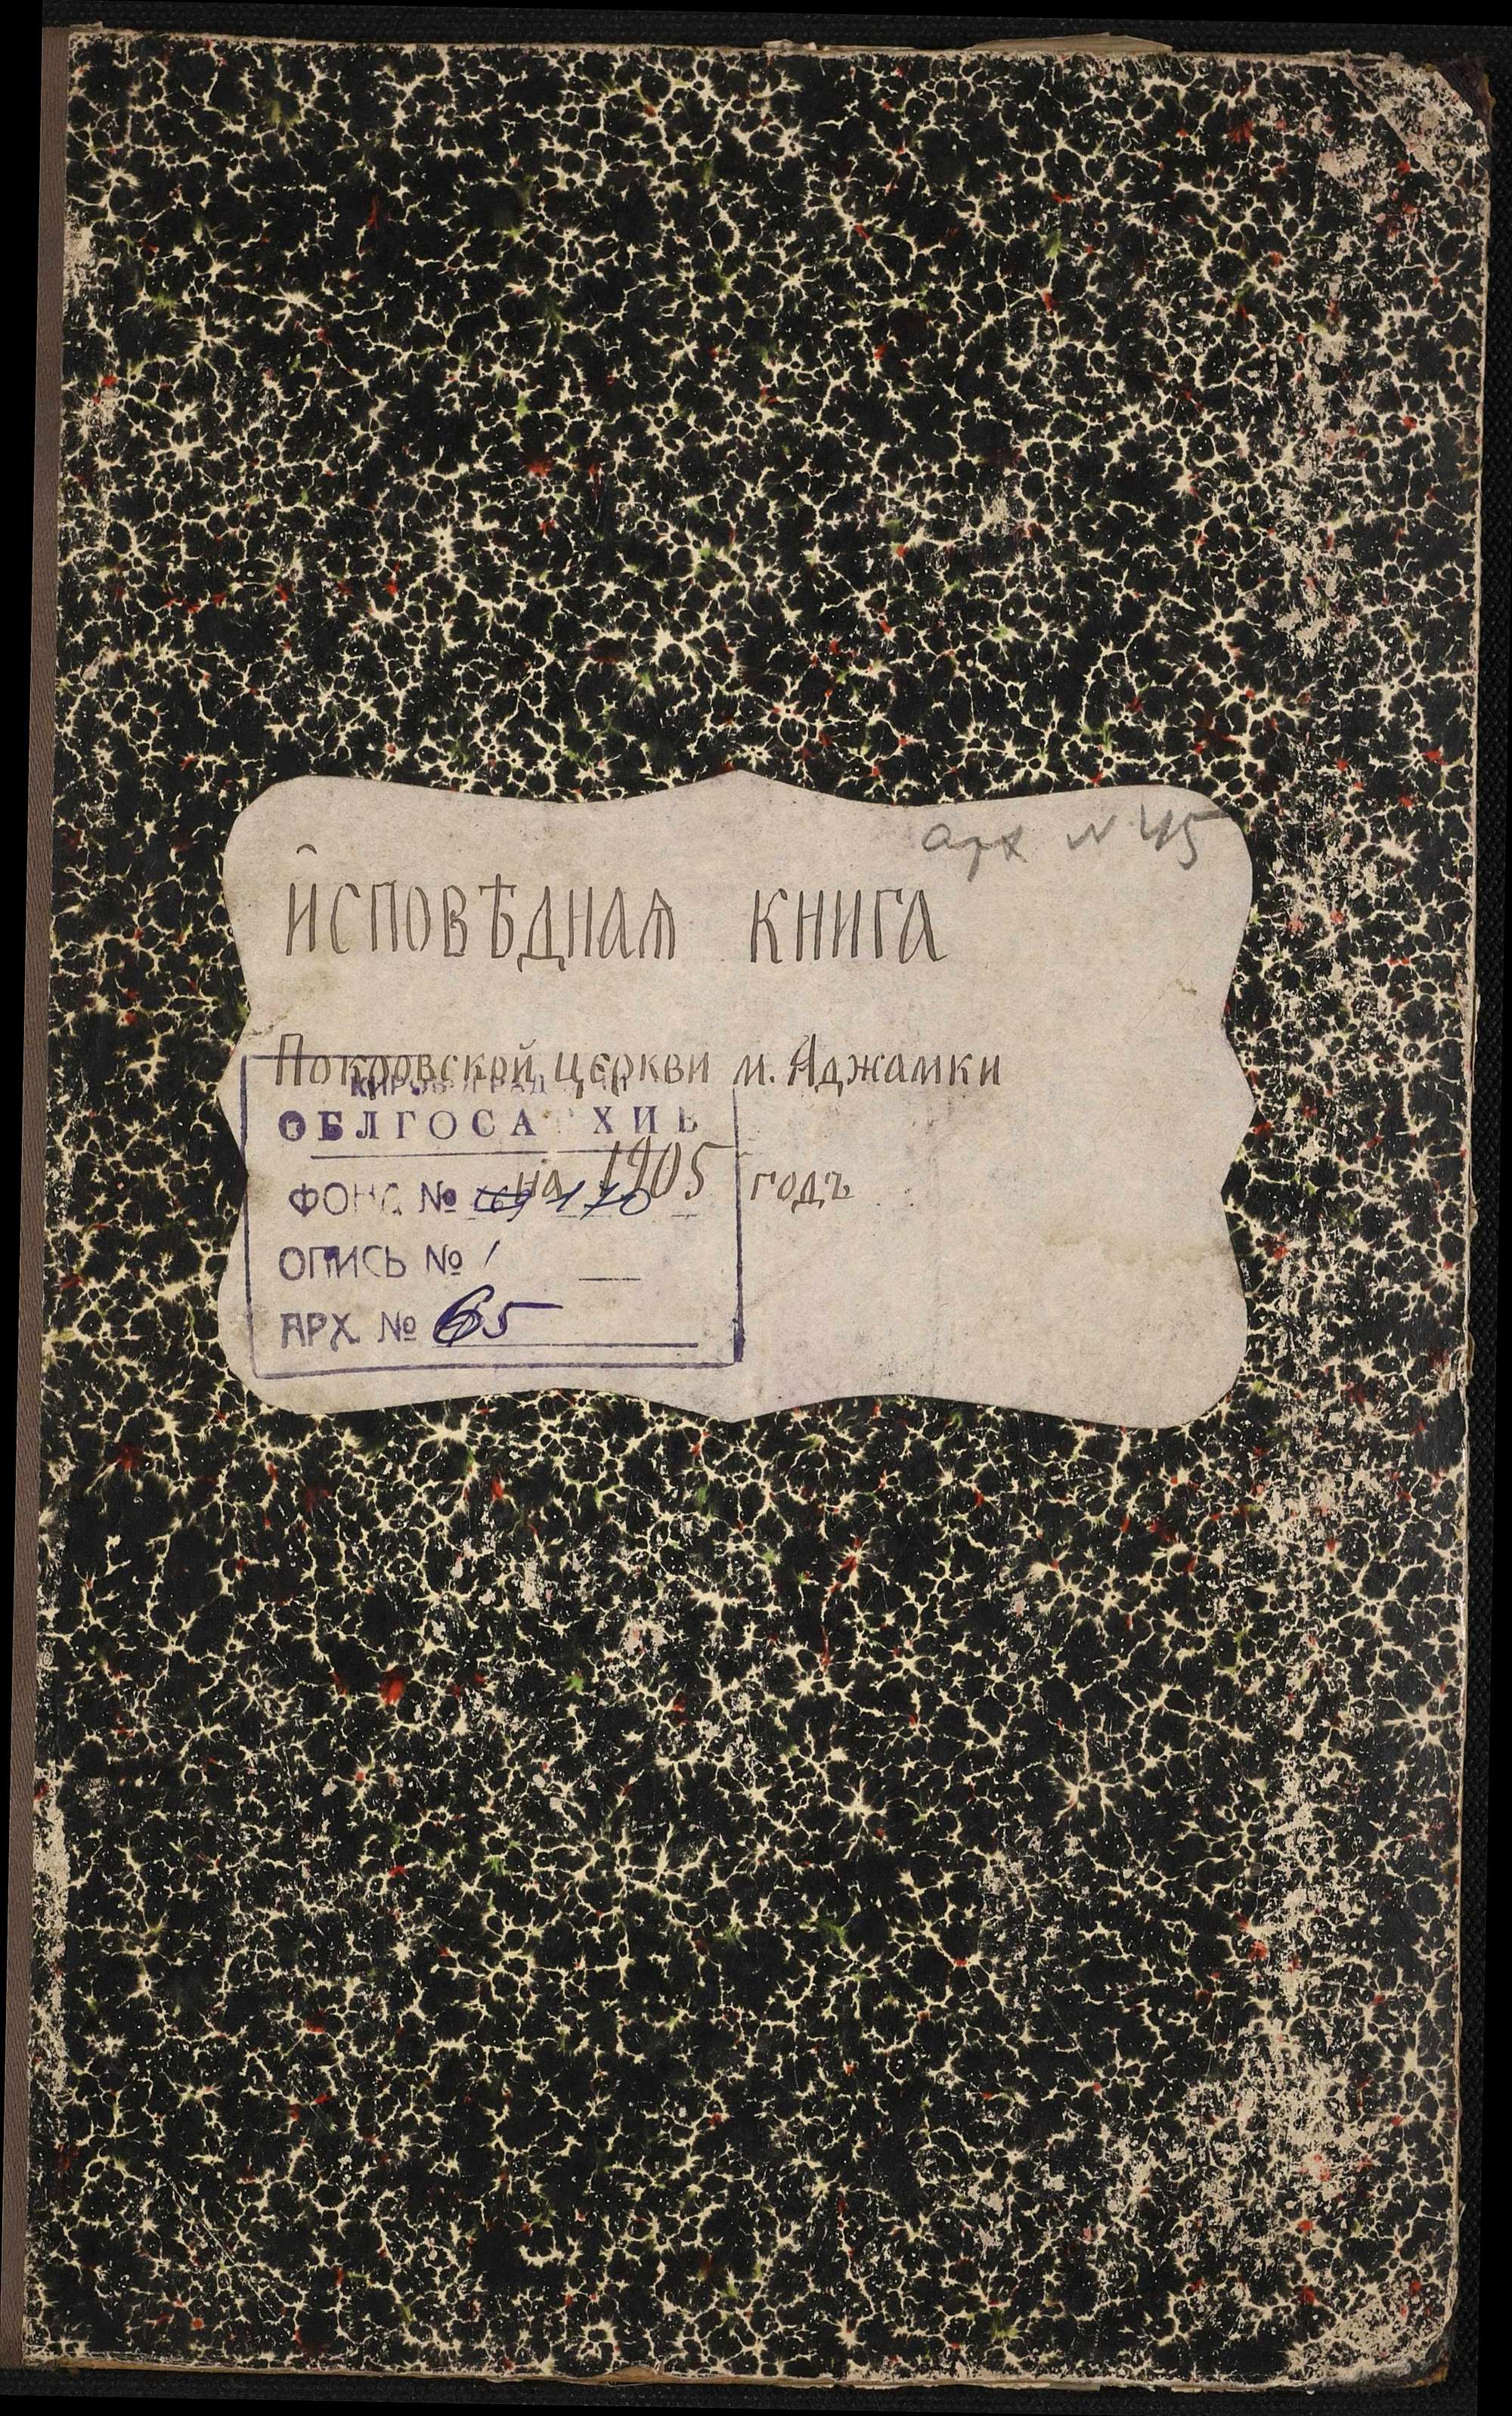 арх №45
ИСПОВѢДНАЯ КНИГА
Покровской церкви м. Аджамки
на 1905 годъ
ОБЛГОСАРХИВ
ФОНД № 110
ОПИСЬ № 1
АРХ. № 65